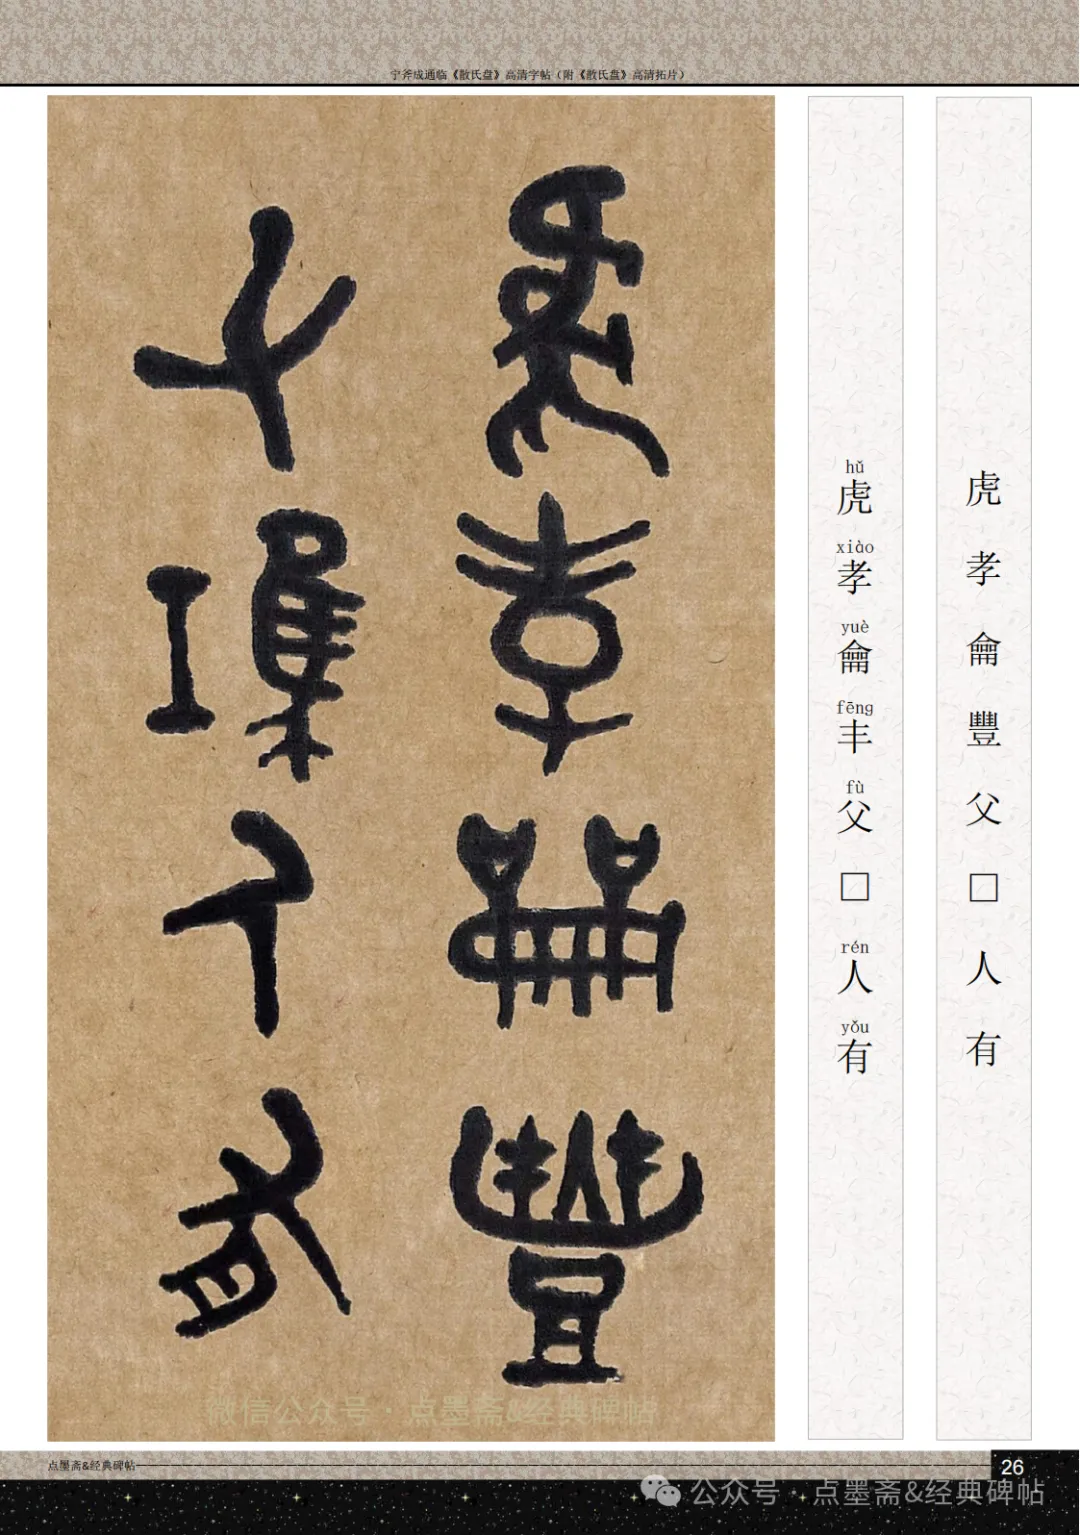 宁斧成通临《散氏盘》高清字帖（附《散氏盘》高清拓片）
虎孝龠豐
父□人有
hǔ xiào yuè fēng fù rén yǒu
虎孝龠丰父□人有
虎孝龠豐父□人有
微信公众号·点墨斋&经典碑帖
点墨斋&经典碑帖
26
公众号·点墨斋&经典碑帖